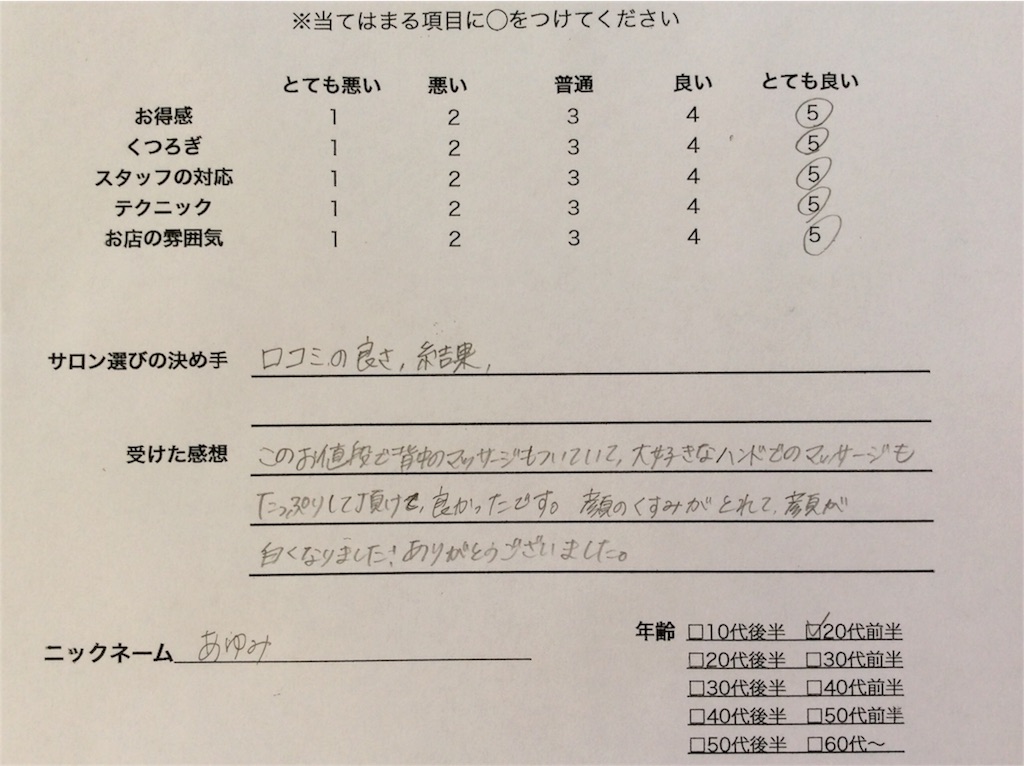 ※当てはまる項目に○をつけてください
とても悪い 悪い 普通 良い とても良い
お得感 1 2 3 4 5
くつろぎ 1 2 3 4 5
スタッフの対応 1 2 3 4 5
テクニック 1 2 3 4 5
お店の雰囲気 1 2 3 4 5
サロン選びの決め手 口コミの良さ,結果,
受けた感想 このお値段で背中のマッサージもついていて,大好きなハンドでのマッサージも
たっぷりして頂けて,良かったです。顔のくすみがとれて,顔が
白くなりました!ありがとうございました。
ニックネーム あゆみ
年齢 □10代後半 ☑20代前半
□20代後半 □30代前半
□30代後半 □40代前半
□40代後半 □50代前半
□50代後半 □60代〜